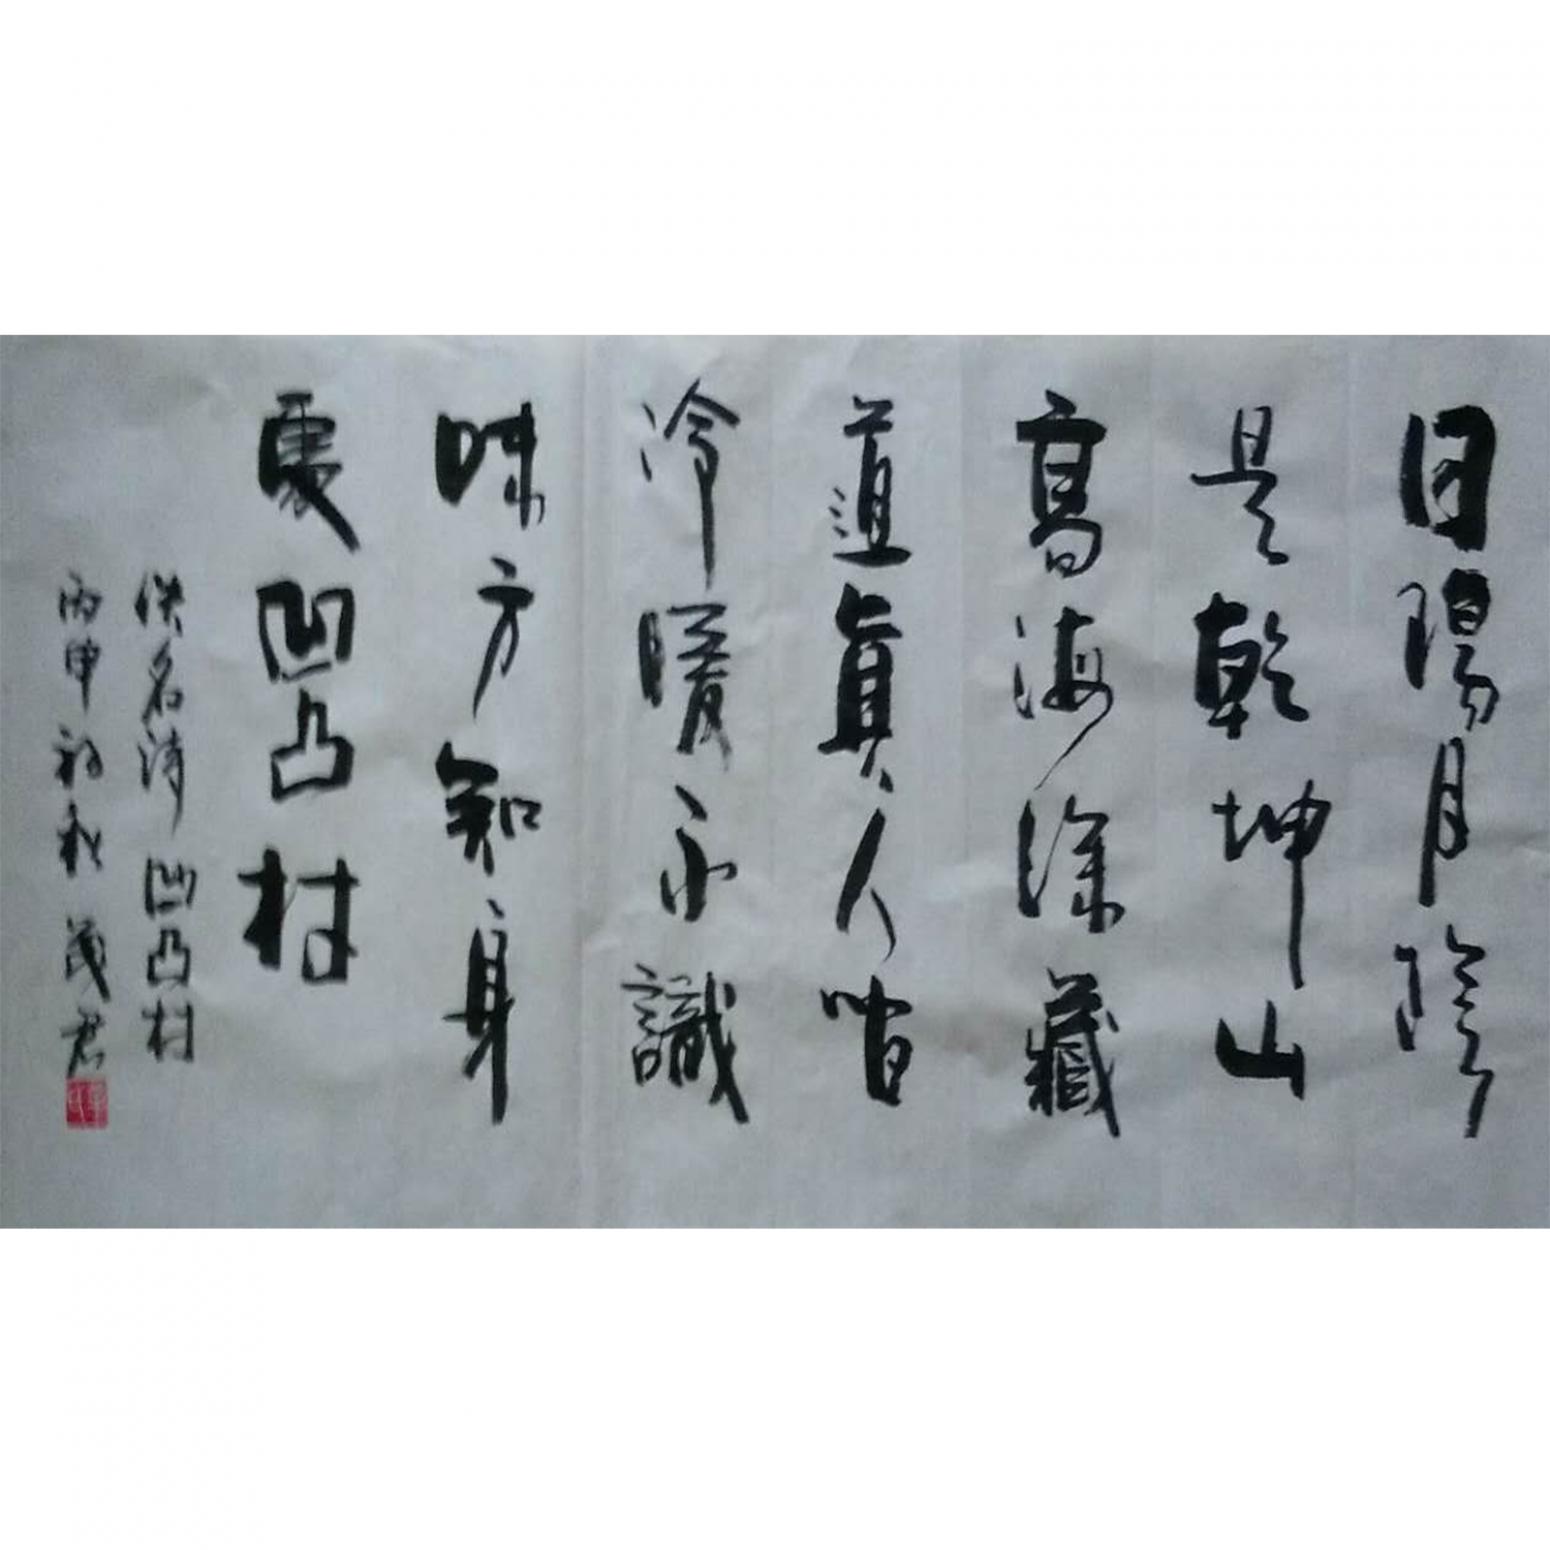 日陽月陰
是乾坤山
高海深藏
道真人間
冷暖不識
味方知身
處凹凸村
佚名詩凹凸村
丙申初秋茂君